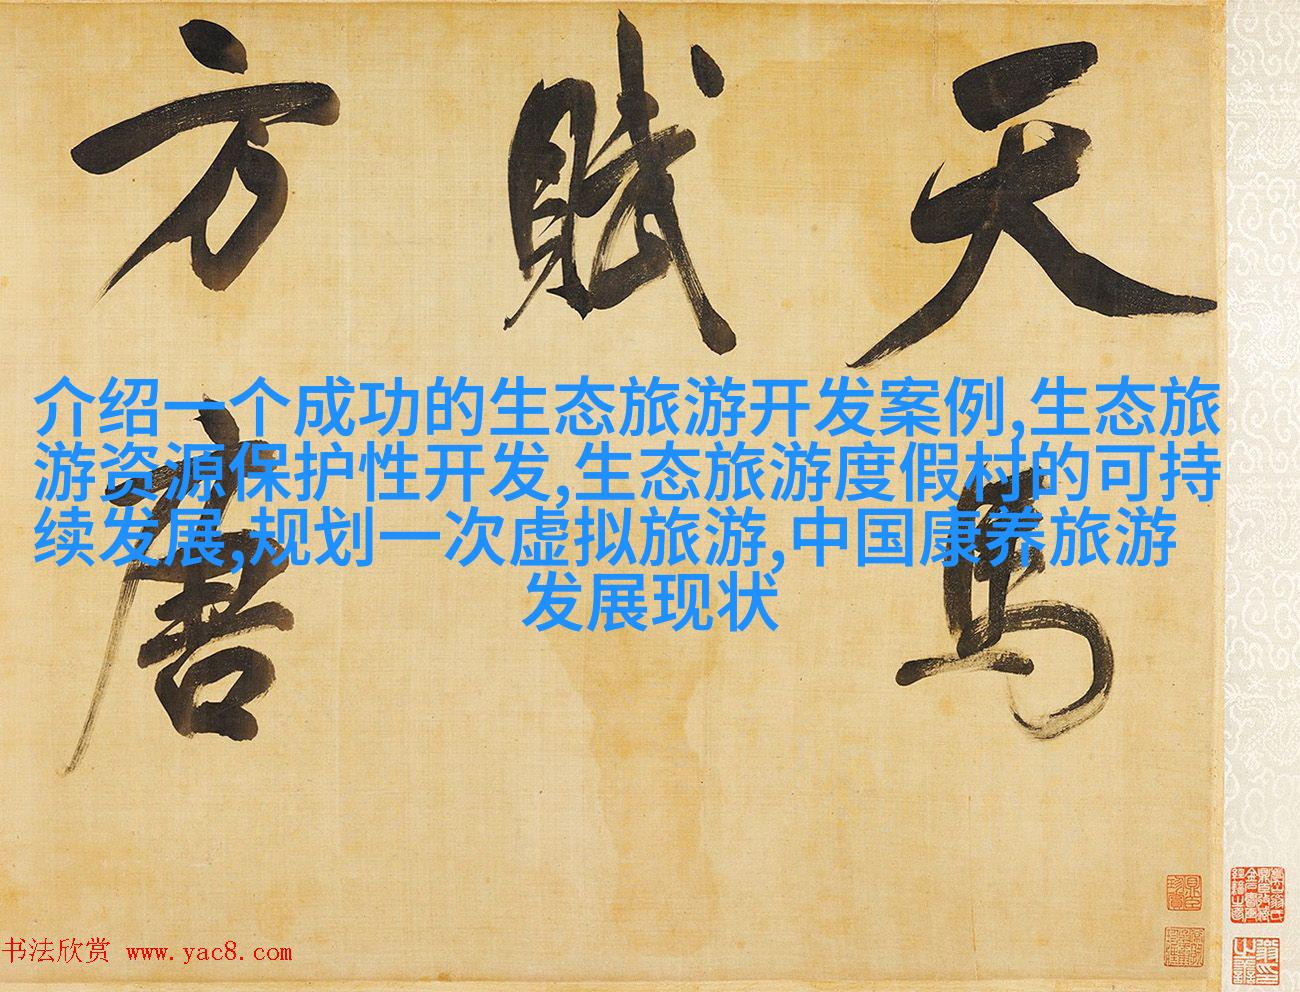 天馬
賦
方唐
介绍一个成功的生态旅游开发案例,生态旅
游资源保护性开发,生态旅游度假村的可持
续发展,规划一次虚拟旅游,中国康养旅游
发展现状
书法欣赏 www.yac8.com